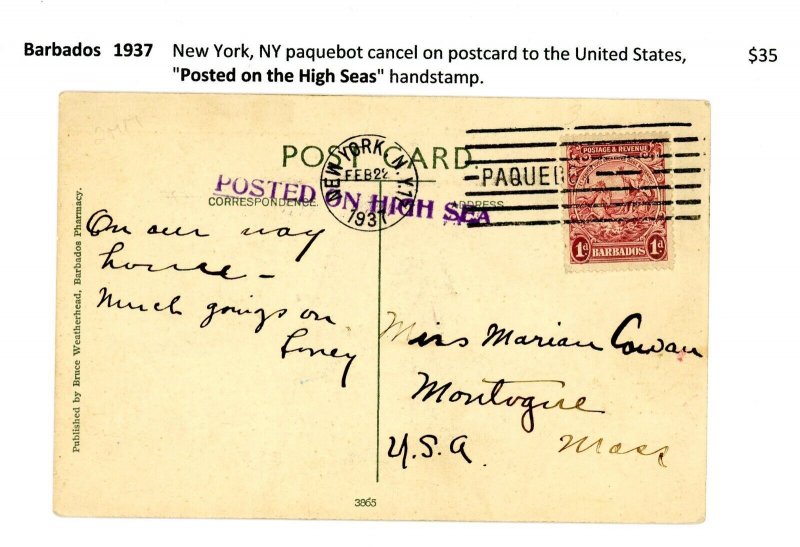 Barbados 1937 New York, NY paquebot cancel on postcard to the United States, $35
"Posted on the High Seas" handstamp.
POST CARD.
NEW YORK, N.Y.
FEB 22
1937
PAQUEBO
POSTED ON HIGH SEA
CORRESPONDENCE.
ADDRESS
POSTAGE & REVENUE
1d BARBADOS 1d
On our way
home –
Much goings on
Miss Marian Cowan
Montague
U.S.A. Mass
Published by Bruce Weatherhead, Barbados Pharmacy.
3865